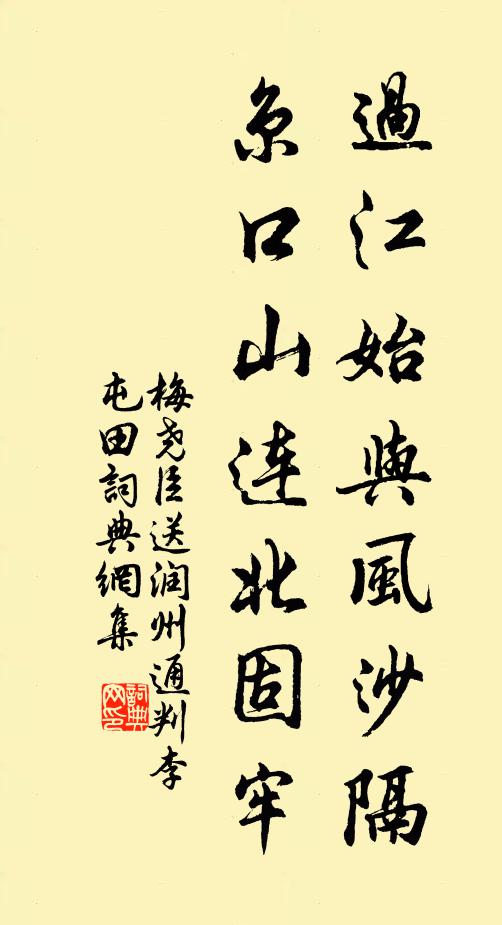 過江始與風沙隔
京口山連北固牢
梅堯臣送润州通判李
屯田詞典網集
詞典网印